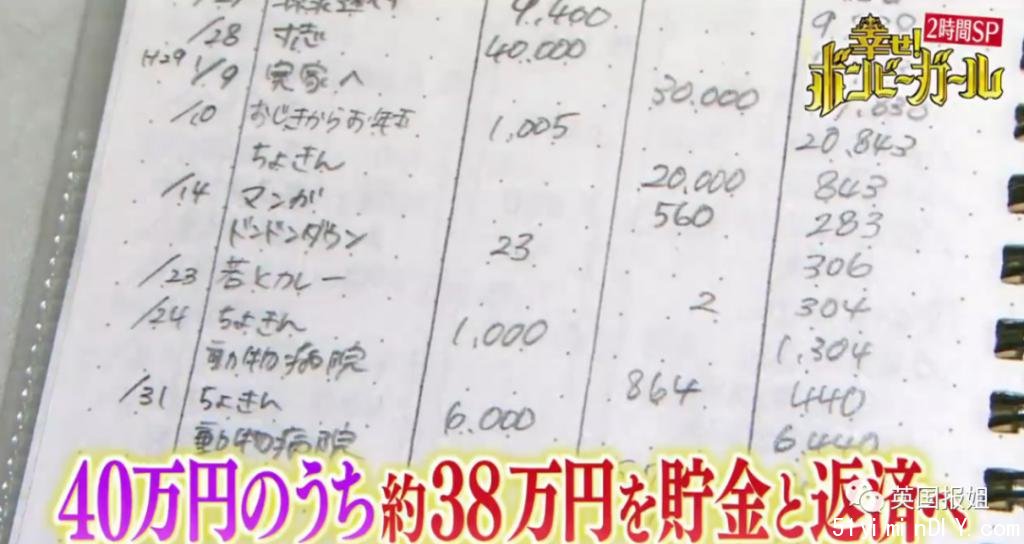 9,400
幸せ! 2時間SP
ボンビーガール
/28 すぎ 40,000
H29 1/9 実家へ 30,000
/10 おじきからお年玉 1,005 20,843
ちょきん 20,000 843
/14 マンガ 560 283
ドンドンダウン 23 306
/23 苔とカレー 2 304
/24 ちょきん 1,000 1,304
動物病院 864 440
/31 ちょきん 6,000 6,440
動物病院
40万円のうち約38万円を貯金と返済へ
英国报姐
51yiminDIY.com